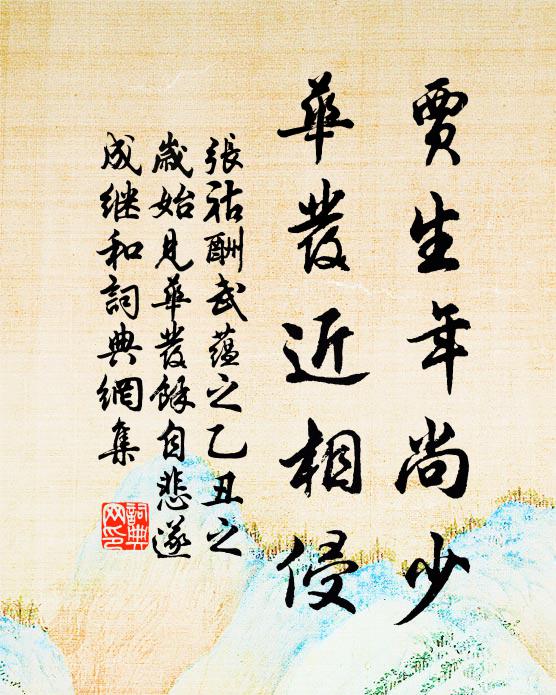 賈生年尚少
華發近相侵
張祜酬武蘊之乙丑之
歲始見華發餘自悲遂
成继和詞典網集
詞典
网印